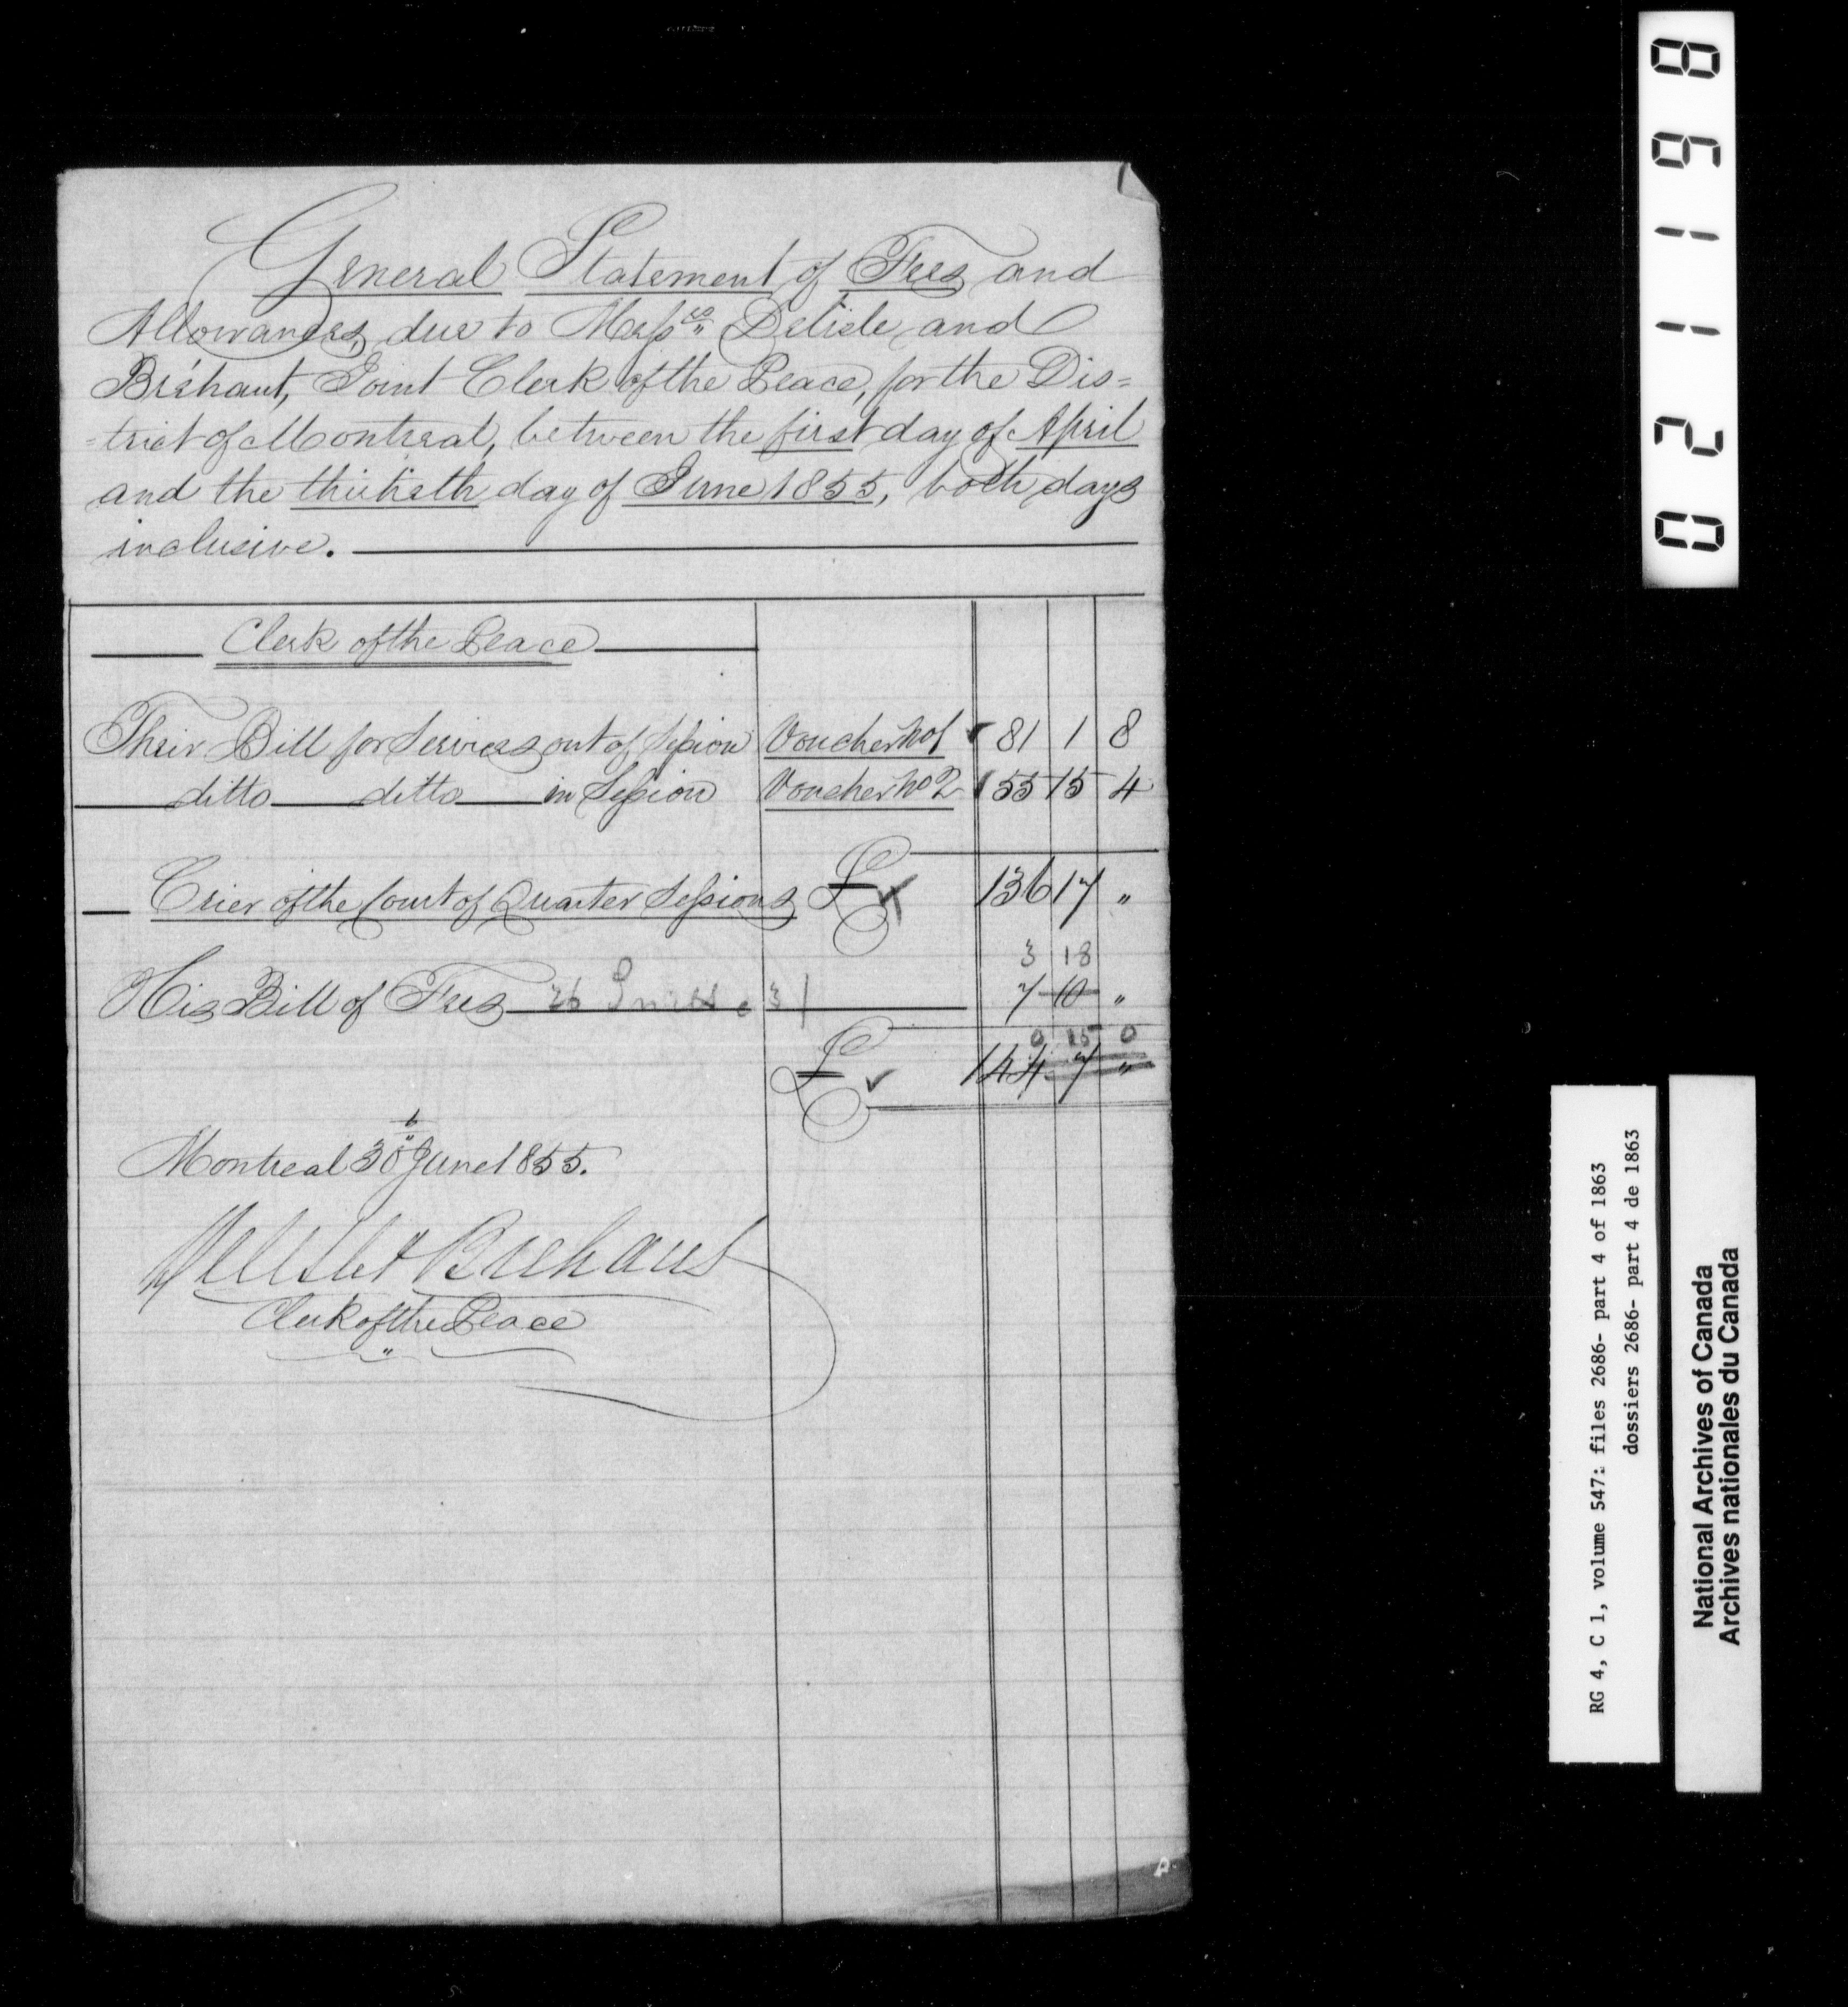 General Statement of Fees and
Allowances, due to Messrs Delisle and
Bréhaut, Joint Clerk of the Peace, for the Dis=
=trict of Montreal, between the first day of April
and the thirtieth day of June 1855, both days
inclusive.
Clerk of the Peace
Their Bill for Services out of Session Voucher No 1 81 1 8
ditto ditto in Session Voucher No 2 55 15 4
Crier of the Court of Quarter Sessions £ 136 17 "
3 18
His Bill of Fees 26 3/ 7 10 "
0 15 0
£ 144 7 "
Montreal 30th June 1855.
Delisle & Brehaut
Clerk of the Peace
021198
RG 4, C 1, volume 547: files 2686- part 4 of 1863
dossiers 2686- part 4 de 1863
National Archives of Canada
Archives nationales du Canada